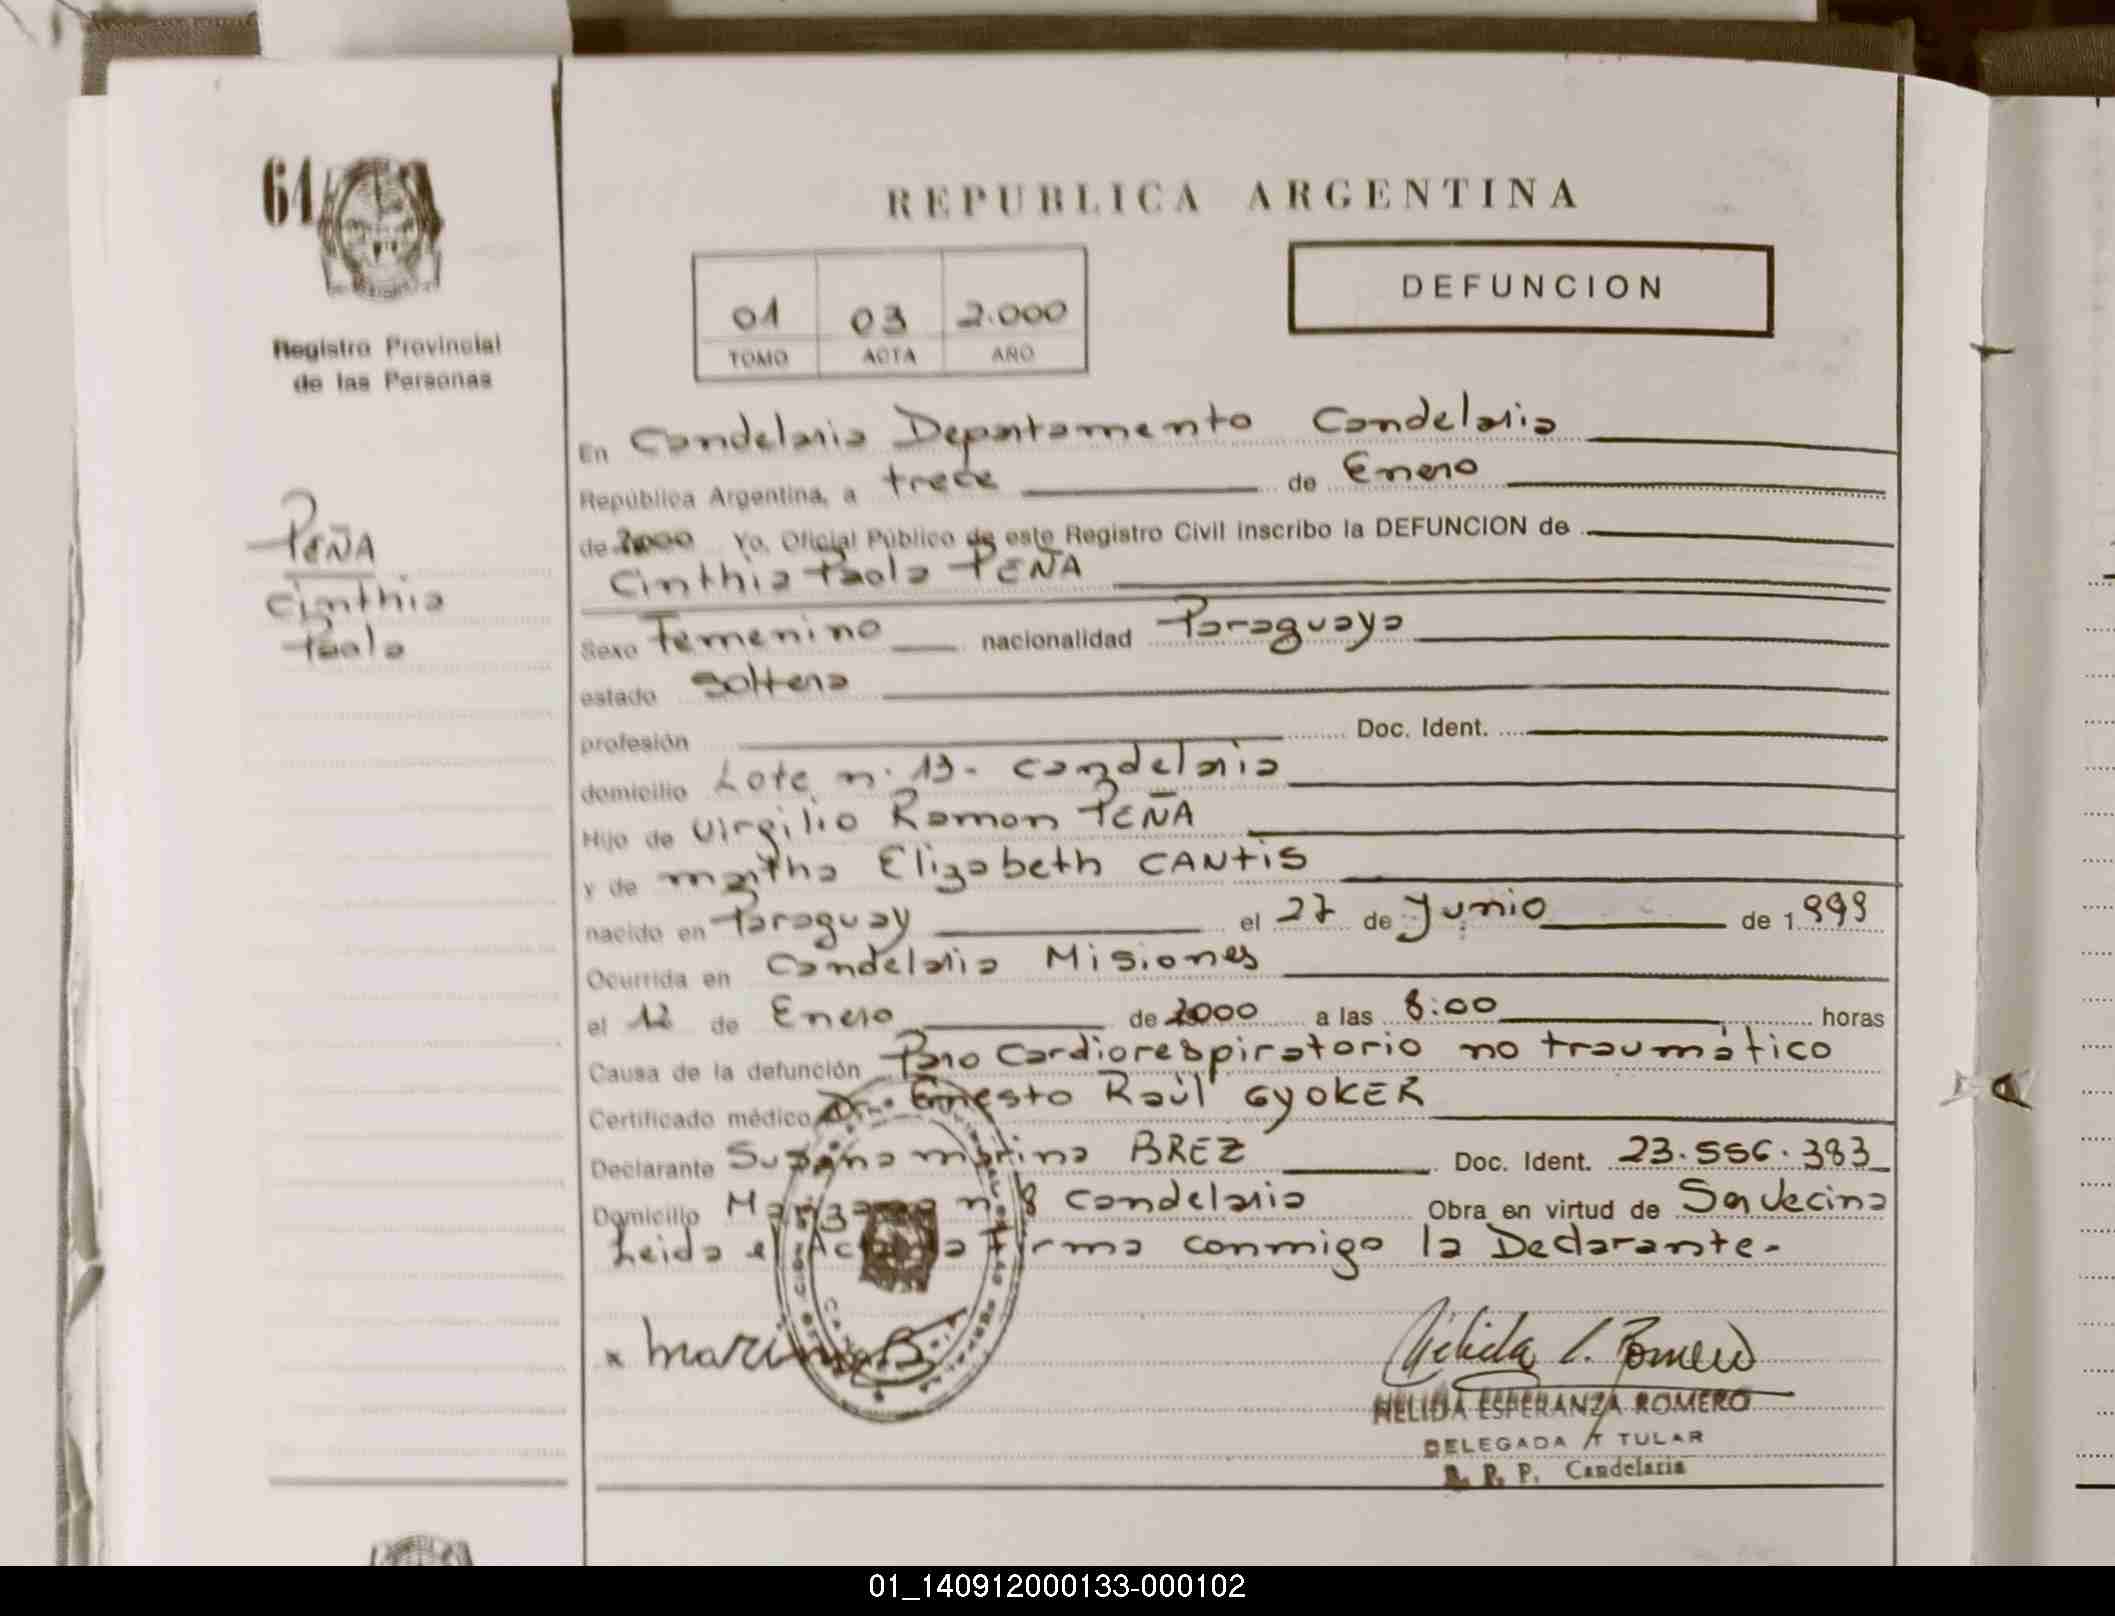 64
Registro Provincial
de las Personas
PEÑA
Cinthia
Paola
REPUBLICA ARGENTINA
01 03 2.000
TOMO ACTA AÑO
DEFUNCION
En Candelaria Departamento Candelaria
República Argentina, a trece de Enero
de 2000 Yo, Oficial Público de este Registro Civil inscribo la DEFUNCION de
Cinthia Paola PEÑA
Sexo Femenino nacionalidad Paraguaya
estado Soltera
profesión Doc. Ident.
domicilio Lote n. 13- Candelaria
Hijo de Virgilio Ramon PEÑA
y de Martha Elizabeth CANTIS
nacido en Paraguay el 27 de Junio de 1999
Ocurrida en Candelaria Misiones
el 12 de Enero de 2000 a las 8:00 horas
Causa de la defunción Paro Cardiorespiratorio no traumático
Certificado médico Dr. Ernesto Raúl GYOKER
Declarante Susana Marina BREZ Doc. Ident. 23.556.383
Domicilio Manzana n 8 Candelaria Obra en virtud de Ser Vecina
Leida el Acta la firma conmigo la Declarante.
x Marina B
Nelida E. Romero
NELIDA ESPERANZA ROMERO
DELEGADA TITULAR
R. P. P. Candelaria
01_140912000133-000102